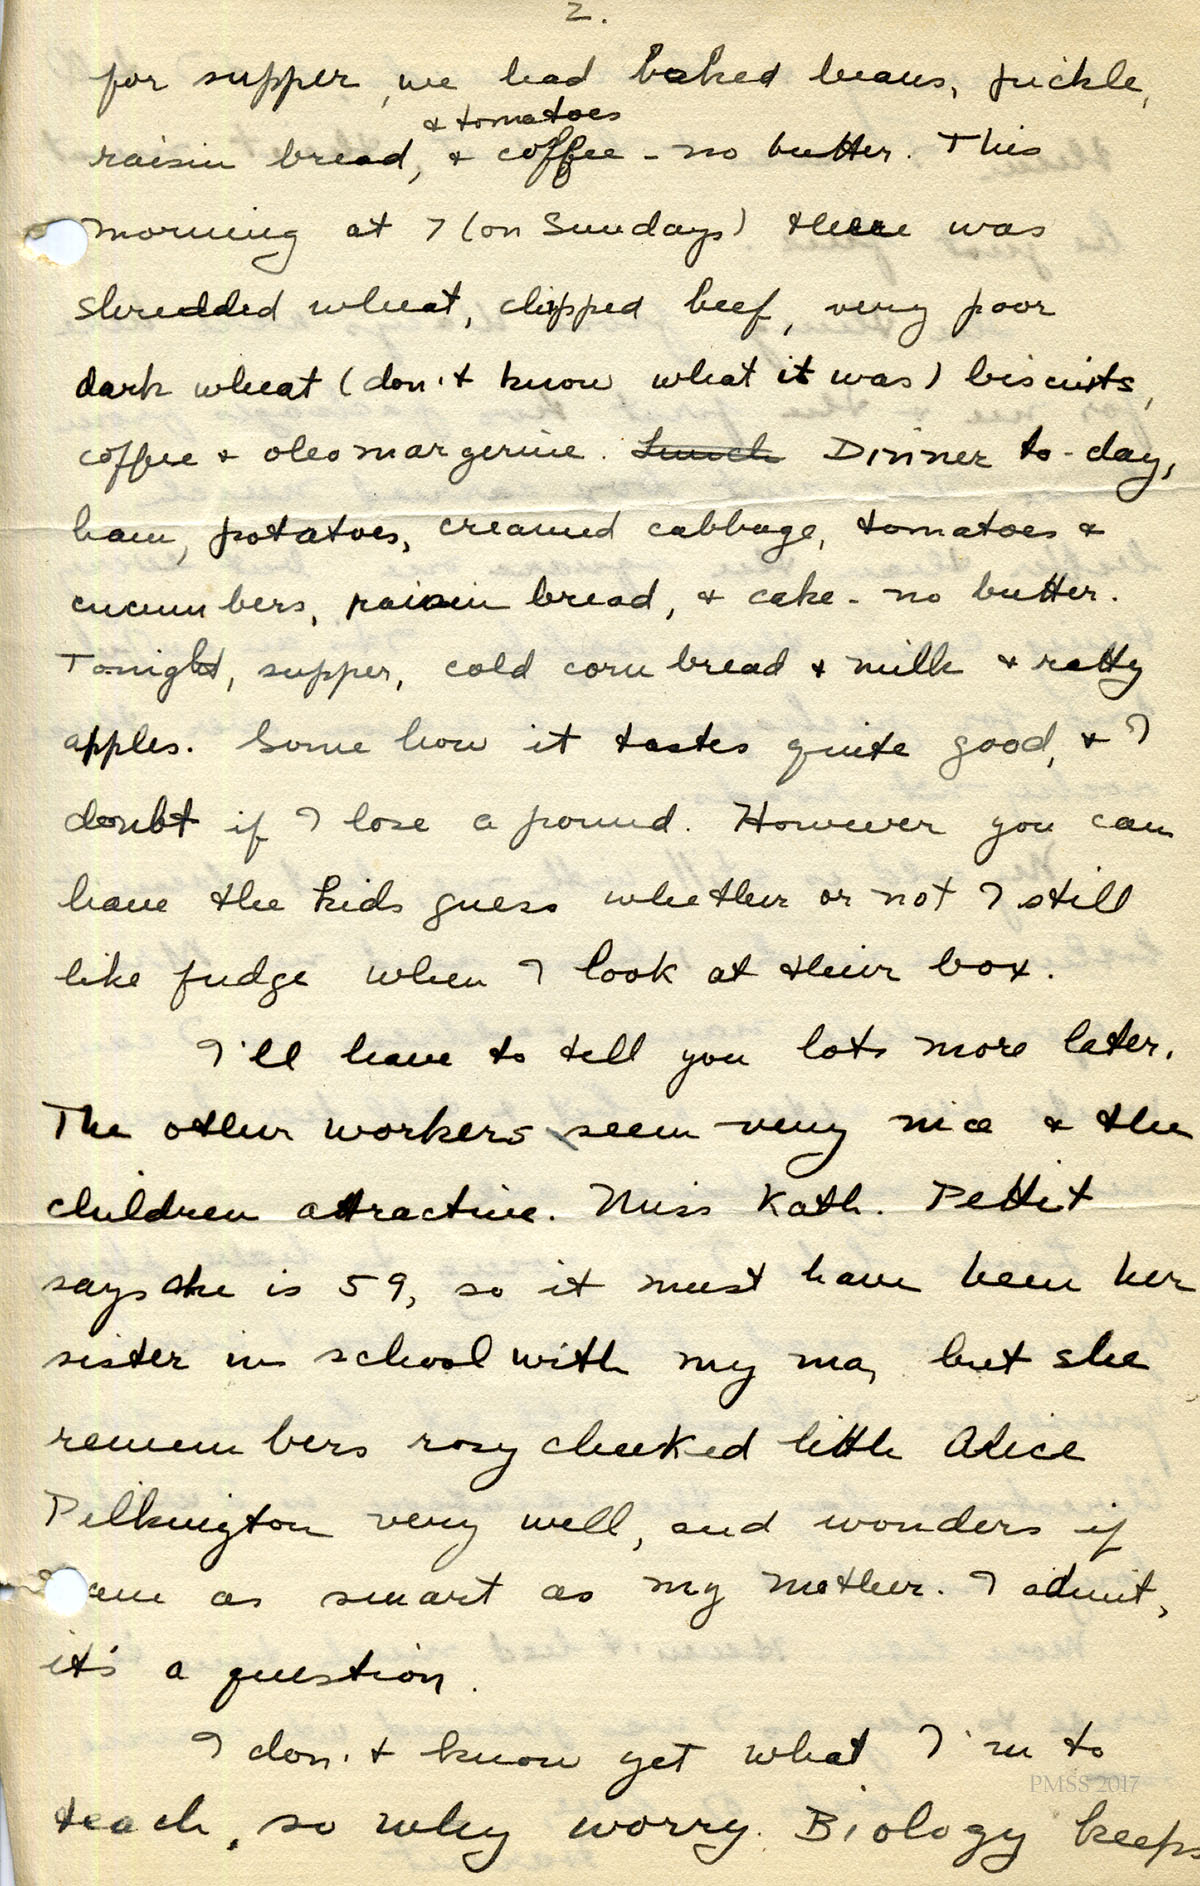 2.
for supper, we had baked beans, pickle,
& tomatoes
raisin bread, & coffee - no butter. This
morning at 7 (on Sundays) there was
shredded wheat, chipped beef, very poor
dark wheat (don't know what it was) biscuits,
coffee & oleomargerine. Lunch Dinner to-day,
ham, potatoes, creamed cabbage, tomatoes &
cucumbers, raisin bread, & cake - no butter.
Tonight, supper, cold corn bread & milk & ratty
apples. Some how it tastes quite good, & I
doubt if I lose a pound. However you can
have the kids guess whether or not I still
like fudge when I look at their box.
I'll have to tell you lots more later.
The other workers seem very nice & the
children attractive. Miss Kath. Pettit
says she is 59, so it must have been her
sister in school with my ma, but she
remembers rosy cheeked little Alice
Pilkington very well, and wonders if
I am as smart as my mother. I admit,
it's a question.
I don't know yet what I'm to
teach, so why worry. Biology keeps
PMSS 2017